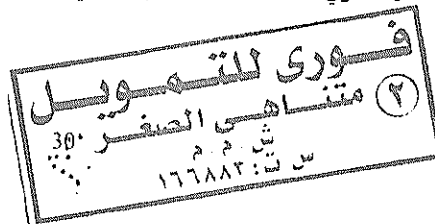 فورى للتمويل
متناهى الصغر ٢
30
ش . م . م
س ت : ١٦٦٨٨٢